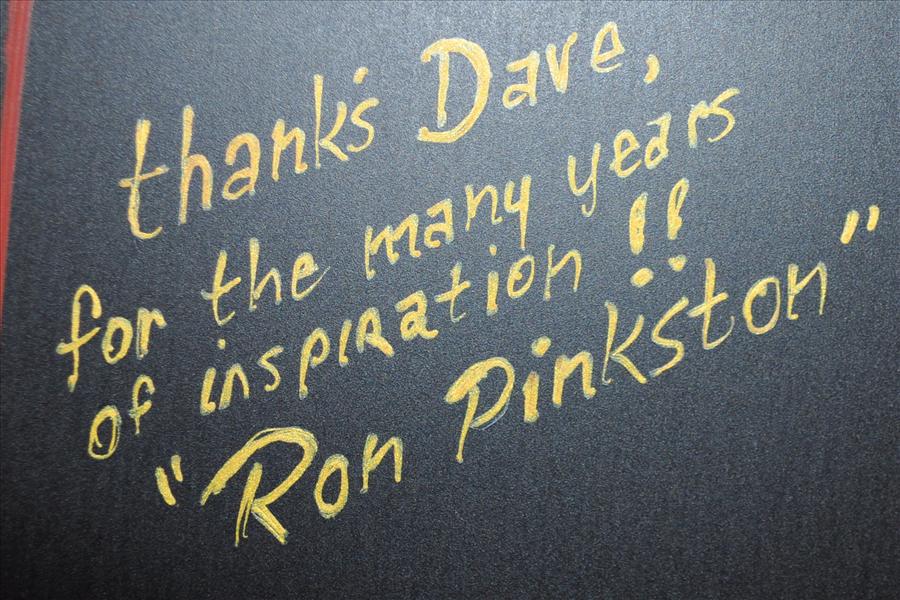 thanks Dave,
for the many years
of inspiration !!
"Ron Pinkston"